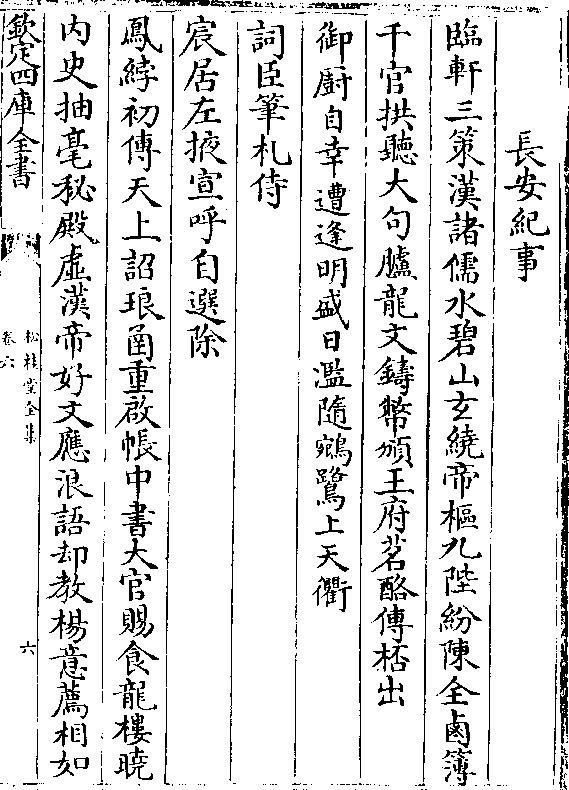 長安紀事
臨軒三策漢諸儒水碧山玄繞帝樞九陛紛陳全鹵簿
千官拱聽大句臚龍文鑄幣頒王府茗酪傳桮出
御厨自幸遭逢明盛日濫隨鵷鷺上天衢
詞臣筆札侍
宸居左掖宣呼自選除
鳳綍初傳天上詔琅函重啟帳中書大官賜食龍樓曉
内史抽毫秘殿虛漢帝好文應浪語却教楊意薦相如
欽定四庫全書
松桂堂全集
卷六
六